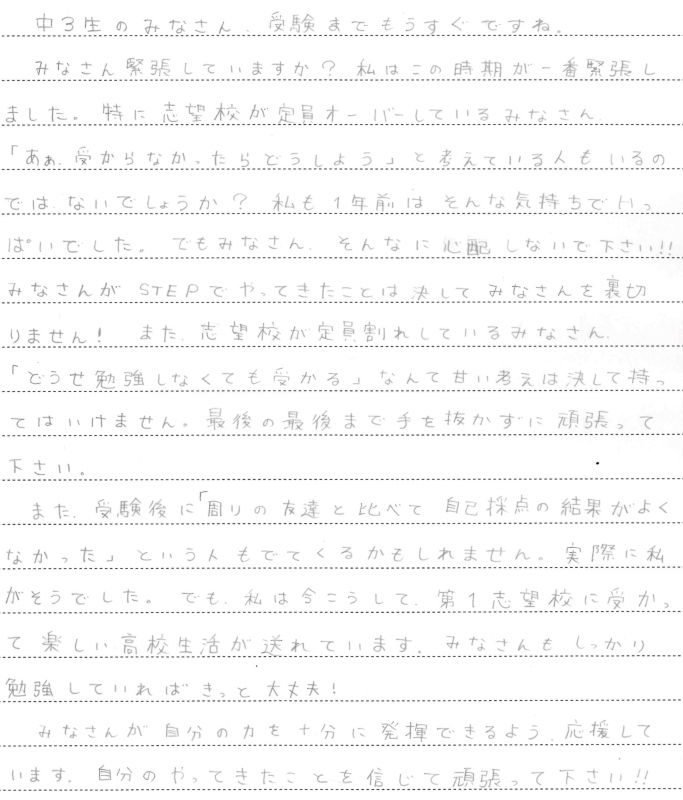 中3生のみなさん、受験までもうすぐですね。
みなさん緊張していますか？私はこの時期が一番緊張し
ました。特に志望校が定員オーバーしているみなさん
「あぁ、受からなかったらどうしよう」と考えている人もいるの
では、ないでしょうか？私も1年前はそんな気持ちでいっ
ぱいでした。でもみなさん、そんなに心配しないで下さい!!
みなさんがSTEPでやってきたことは決してみなさんを裏切
りません！また、志望校が定員割れしているみなさん、
「どうせ勉強しなくても受かる」なんて甘い考えは決して持っ
てはいけません。最後の最後まで手を抜かずに頑張って
下さい。
また、受験後に「周りの友達と比べて自己採点の結果がよく
なかった」という人もでてくるかもしれません。実際に私
がそうでした。でも、私は今こうして、第1志望校に受かっ
て楽しい高校生活が送れています。みなさんもしっかり
勉強していればきっと大丈夫！
みなさんが自分の力を十分に発揮できるよう、応援して
います。自分のやってきたことを信じて頑張って下さい!!